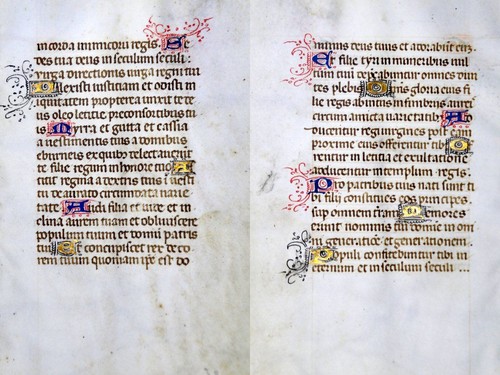 in corda inimicoru regis. Se
des tua deus in seculum seculi:
virga directionis virga regni tui
O ilexisti iusticiam et odisti in
iquitatem propterea unxit te de
us oleo leticie preconsortibus tu
is Myrra et gutta et cassia
a vestimentis tuis a domibus
eburneis ex quibus delectaverunt
te filie regum in honore tuo A
stitit regina a dextris tuis i vesti
tu deaurato circumdata varie
tate Audi filia et vide et in
clina aurem tuam et obliviscere
populum tuum et domu patris
tui Et concupiscet rex de co
rem tuum quoniam ipse est do
minus deus tuus et adorabut eum.
Et filie tyri in muneribus vul
tum tuu deprecabuntur omnes divi
tes plebis O is gloria eius fi
lie regis ab intus in fimbriis aureis
circum amicta varietatibus Ad
ducentur regi virgines post eam
proxime eius offerentur tibi O
rentur in leticia et exultatione
adducentur in templum regis.
Pro patribus tuis nati sunt ti
bi filii constitues eos principes
sup omnem terram Memores
erunt nominis tui domine in om
ni generatione et generationem.
O populi confitebuntur tibi in
eternum et in seculum seculi ...